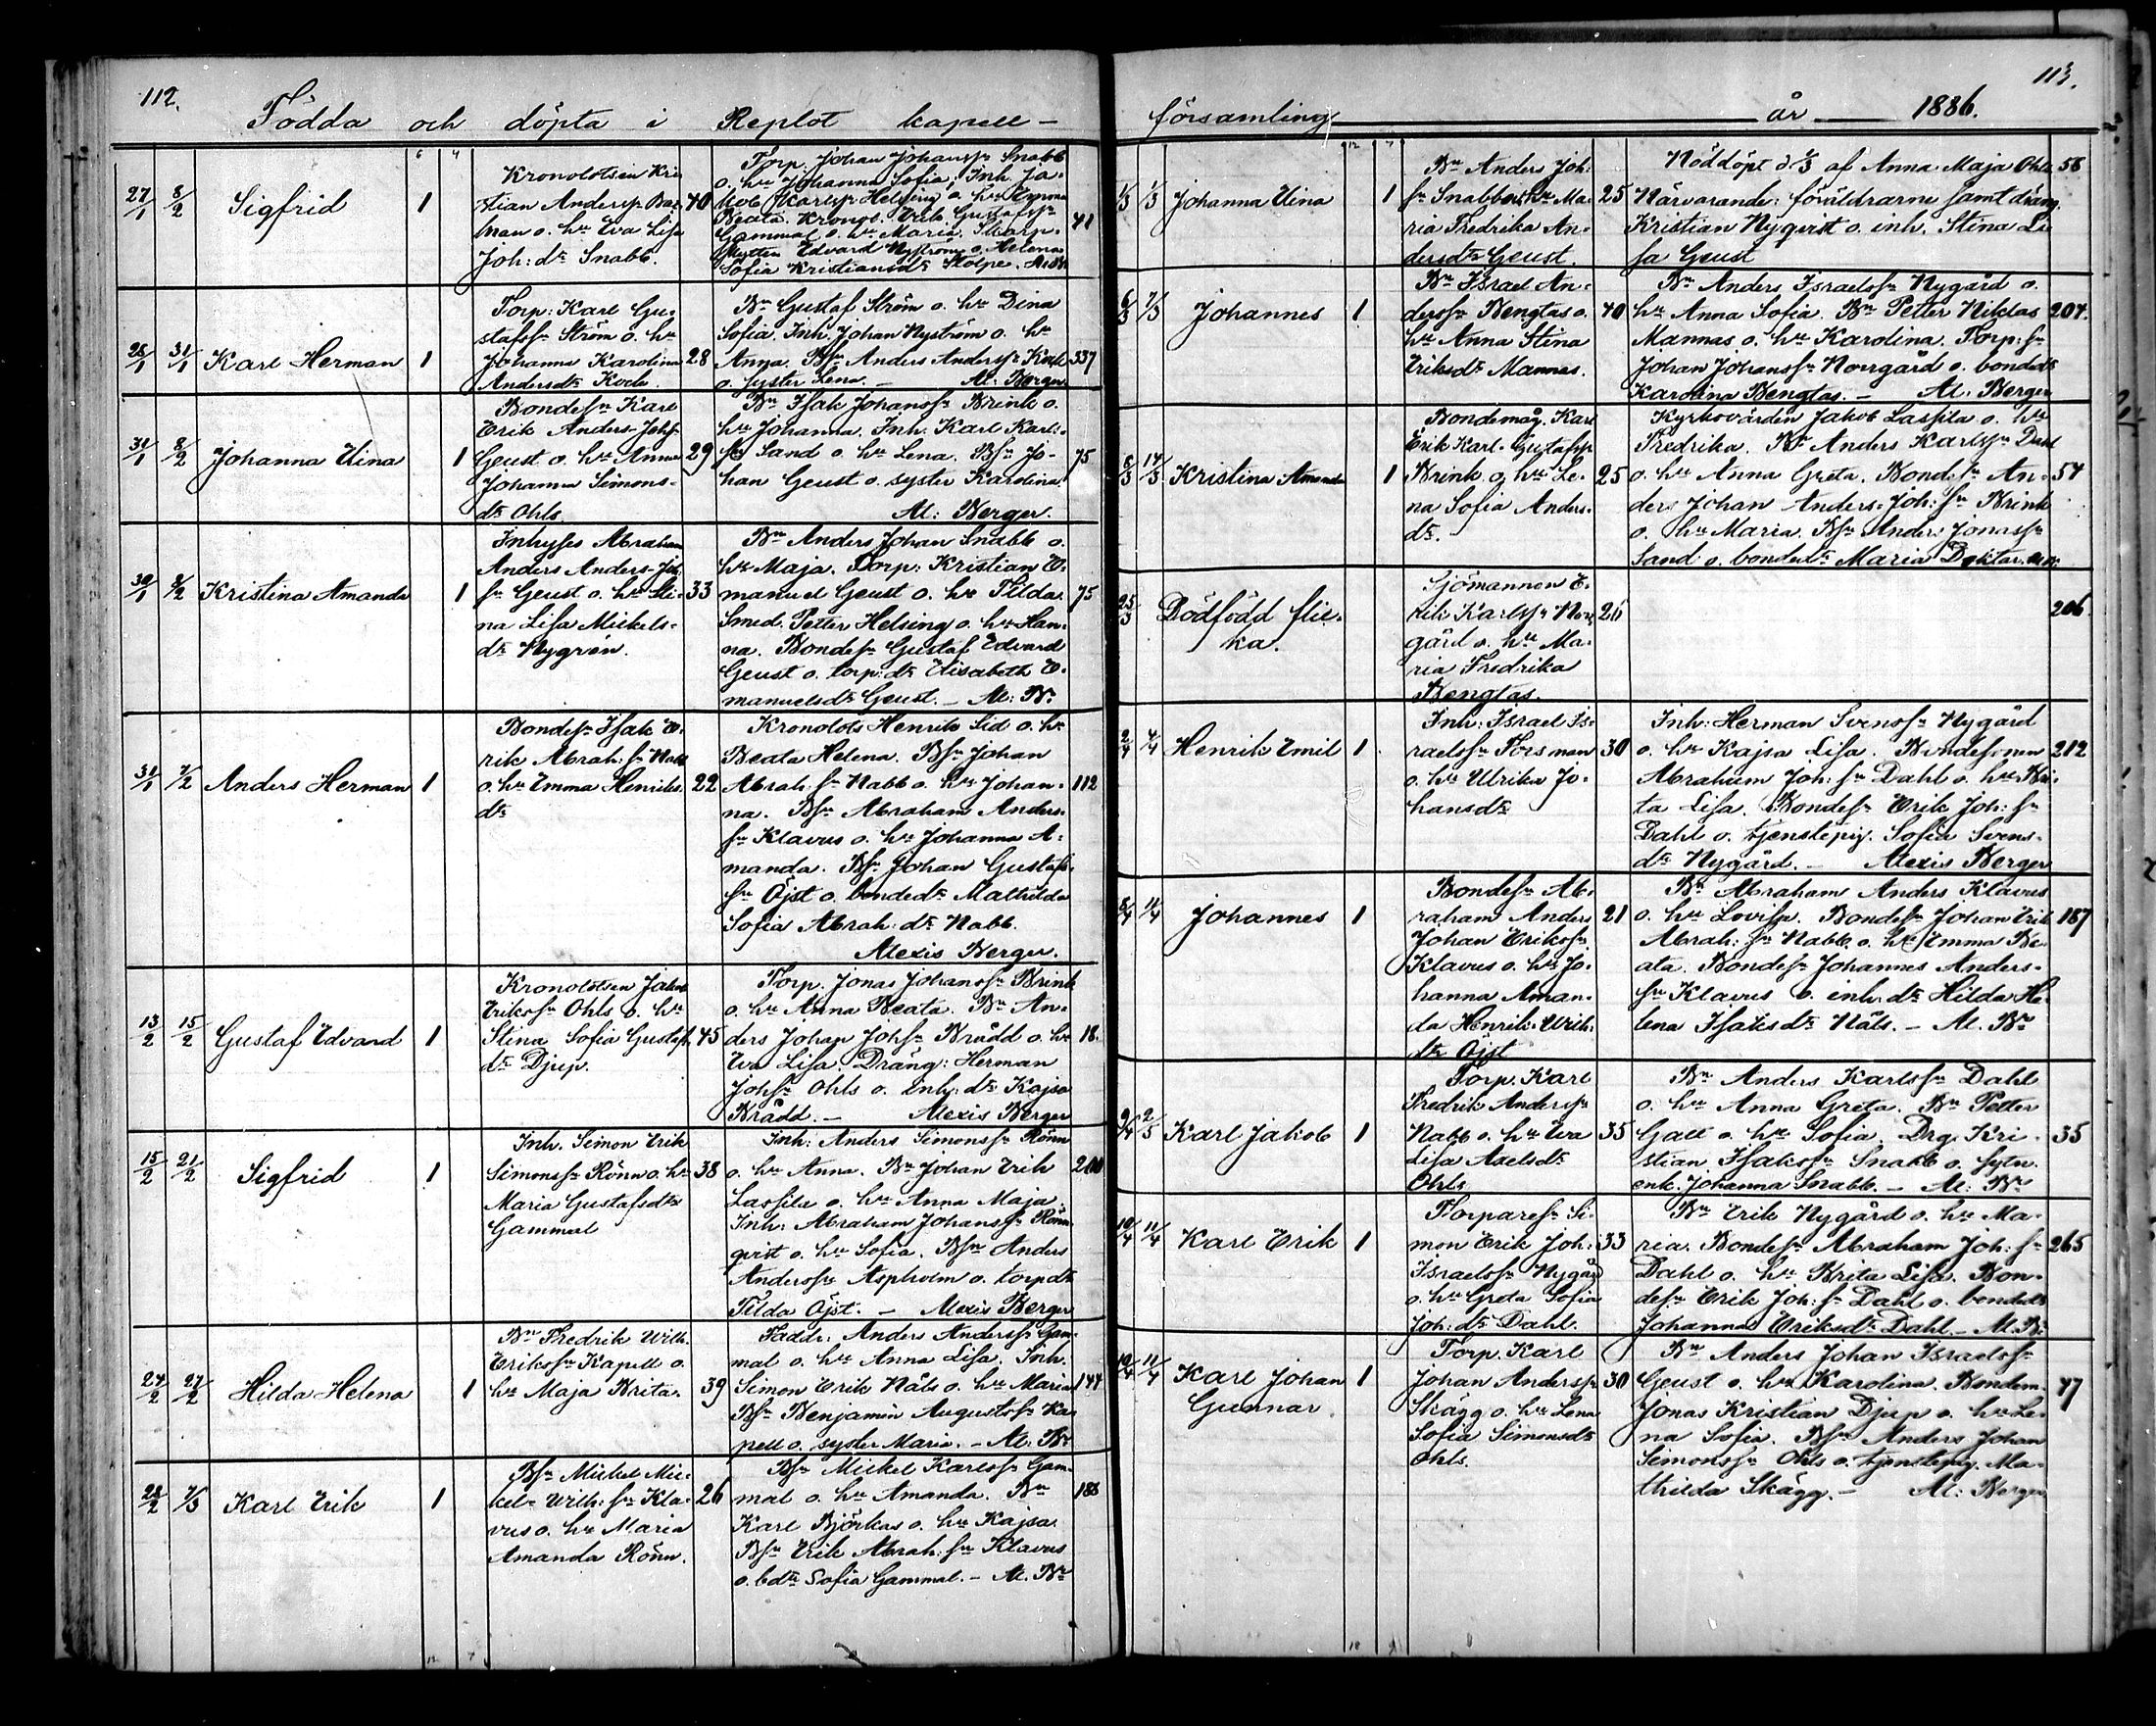 112.
Födda och döpta i Replot kapell-
6 4
27/1 8/2 Sigfrid 1
Kronolotsen Kri
stian Anderss:
man o. hu Eva Lisa
Joh: dr Snabb.
40
Torp. Johan Johanssn Snabb
o. hu Johanna Sofia; Inh. Ja-
kob Karlssn Helsing o. hu
Beata. Kronol. Erik Gustafssn
Gammal o. hu Maria. Skarp-
skytten Edvard Nyström o. Helena
Sofia Kristiansdr Stolpe.
41
28/1 31/1 Karl Herman 1
Torp: Karl Gu-
stafssn Ström o. hu
Johanna Karolina
Andersdr Kock.
28
Bn Gustaf Ström o. hu Dina
Sofia. Inh. Johan Nyström o. hu
Anna. Bsn Anders Anderssn Kock
o. syster Lena. - Al. Berger
337
31/1 8/2 Johanna Elina 1
Bondesn Karl
Erik Anders-Johs
Geust o. hu Anna
Johanna Simons-
dr Ohls
29
Bn Isak Johanssn Brink o.
hu Johanna. Inh. Karl Karl-
sn Sand o. hu Lena. Bsn Jo-
han Geust o. syster Karolina
Al: Berger.
75
30/1 8/2 Kristina Amanda 1
Inhyses Abraham
Anders Anders-Joh
sn Geust o. hu Sti-
na Lisa Mickels-
dr Nygrén.
33
Bn Anders Johan Snabb o.
hu Maja. Torp: Kristian E-
manuel Geust o. hu Tilda.
Smed. Petter Helsing o. hu Han-
na. Bondesn Gustaf Edvard
Geust o. torp: dr Elisabeth E-
manuelsdr Geust. - Al: Br
75
31/1 7/2 Anders Herman 1
Bondesn Isak E-
rik Abrah: sn Nabb
o. hu Emma Henriks
dr
22
Kronolots Henrik Sid o. hu
Beata Helena. Bsn Johan
Abrah: sn Nabb o. hu Johan-
na. Bsn Abraham Anders-
sn Klavus o. hu Johanna A-
manda. Bsn Johan Gustafs-
sn Öjst o. bondedr Mathilda
Sofia Abrah: dr Nabb.
Alexis Berger.
112
13/2 15/2 Gustaf Edvard 1
Kronolotsen Jakob
Erikssn Ohls o. hu
Stina Sofia Gustafs
dr Djup.
45
Torp. Jonas Johanssn Brink
o. hu Anna Beata. Bn An-
ders Johan Johssn Brådd o. hu
Eva Lisa. Dräng: Herman
Johssn Ohls o. inh: dr Kajsa
Brådd. - Alexis Berger
18.
15/2 21/2 Sigfrid 1
Inh. Simon Erik
Simonssn Rönn o. hu
Maria Gustafsdr
Gammal
38
Inh: Anders Simonssn Rönn
o. hu Anna. Bn Johan Erik
Lassila o. hu Anna Maja.
Inh: Abraham Johanssn Rönn-
qvist o. hu Sofia. Bsn Anders
Anderssn Aspholm o. torpdr
Tilda Öjst. - Alexis Berger
200
24/2 27/2 Hilda Helena 1
Bn Fredrik Wilh.
Erikssn Kapell o.
hu Maja Brita.
39
Faddr: Anders Anderssn Gam-
mal o. hu Anna Lisa. Inh.
Simon Erik Näls o. hu Maria
Bsn Benjamin Augustssn Ka-
pell o. syster Maria. - Al: Br
144
28/2 7/3 Karl Erik 1
Bsn Mickel Mic-
kel- Wilh: sn Kla-
vus o. hu Maria
Amanda Rönn.
26
Bsn Mickel Karlssn Gam-
mal o. hu Amanda. Bn
Karl Björkas o. hu Kajsa.
Bsn Erik Abrah: sn Klavus
o. bdr Sofia Gammal. - Al. Br
188
12 7
113.
församling år 1886.
12 7
1/3 1/3 Johanna Elina 1
Bn Anders Joh:
sn Snabb o. hu Ma-
ria Fredrika An-
dersdr Geust.
25
Nöddöpt d. 1/3 af Anna Maja Ohls
Närvarande: föräldrarne samt dräng.
Kristian Nyqvist o. inh. Stina Li
sa Geust
58
6/3 7/3 Johannes 1
Bn Israel An-
derssn Bengtas o.
hu Anna Stina
Eriksdr Mannas.
40
Bn Anders Israelssn Nygård o.
hu Anna Sofia. Bn Petter Niklas
Mannas o. hu Karolina. Torp: sn
Johan Johanssn Norrgård o. bondedr
Karolina Bengtas. - Al. Berger
204.
8/3 14/3 Kristina Amanda 1
Bondemåg. Karl
Erik Karl-Gustafssn
Brink o. hu Le-
na Sofia Anders-
dr.
25
Kyrkovärden Jakob Lassila o. hu
Fredrika. Bn Anders Karlssn Dahl
o. hu Anna Greta. Bondesn An-
ders Johan Anders-Joh: sn Brink
o. hu Maria. Bsn Anders Jonassn
Sand o. bondedr Maria Doktar.
54
25/3 Dödfödd flic-
ka.
Sjömannen E-
rik Karlssn Nor-
gård o. hu Ma-
ria Fredrika
Bengtas.
26
206.
2/4 4/4 Henrik Emil 1
Inh: Israel Is-
raelssn Forsman
o. hu Ulrika Jo-
hansdr
30
Inh: Herman Svenssn Nygård
o. hu Kajsa Lisa. Bondesonen
Abraham Joh: sn Dahl o. hu Bri-
ta Lisa. Bondesn Erik Joh: sn
Dahl o. tjenstepig. Sofia Svens-
dr Nygård. - Alexis Berger
212
8/4 11/4 Johannes 1
Bondesn Ab-
raham Anders
Johan Erikssn
Klavus o. hu Jo-
hanna Aman-
da Henrik-Erik-
dr Öjst
21
Bn Abraham Anders Klavus
o. hu Lovisa. Bondesn Johan Erik
Abrah: sn Nabb o. hu Emma Be-
ata. Bondesn Johannes Anders-
sn Klavus o. inh: dr Hilda He-
lena Isaksdr Näls. - Al. Br
187
9/4 2/5 Karl Jakob 1
Torp. Karl
Fredrik Anderssn
Nabb o. hu Eva
Lisa Axelsdr
Ohls
35
Bn Anders Karlssn Dahl
o. hu Anna Greta. Bn Petter
Gall o. hu Sofia. Drg. Kri-
stian Isakssn Snabb o. sytn.
enk. Johanna Snabb. - Al: Br
35
10/4 11/4 Karl Erik 1
Torparesn Si-
mon Erik Joh:
Israelssn Nygård
o. hu Greta Sofia
Joh: dr Dahl.
33
Bn Erik Nygård o. hu Ma-
ria. Bondesn Abraham Joh: sn
Dahl o. hu Brita Lisa. Bon-
desn Erik Joh: sn Dahl o. bondedr
Johanna Eriksdr Dahl. - Al. Br
265
10/4 11/4 Karl Johan
Gunnar. 1
Torp. Karl
Johan Anderssn
Skägg o. hu Lena
Sofia Simonsdr
Ohls.
30
Bn Anders Johan Israelssn
Geust o. hu Karolina. Bondem.
Jonas Kristian Djup o. hu Le-
na Sofia. Bsn Anders Johan
Simonssn Ohls o. tjenstepig. Ma-
thilda Skägg. - Al: Berger
47
18 9